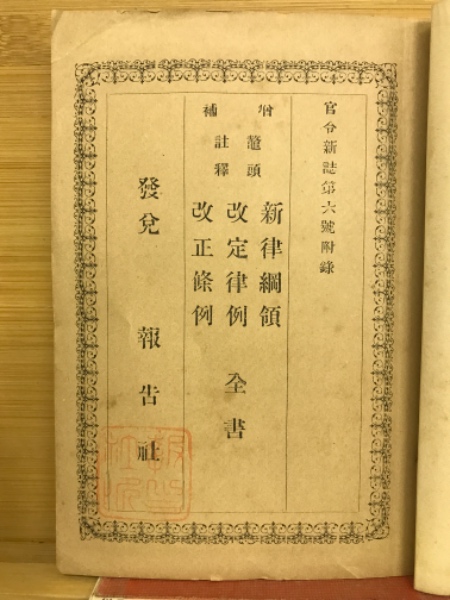 官令新誌第六號附錄
增補
鼇頭
註釋
新律綱領
改定律例
改正條例
全書
發兌 報告社